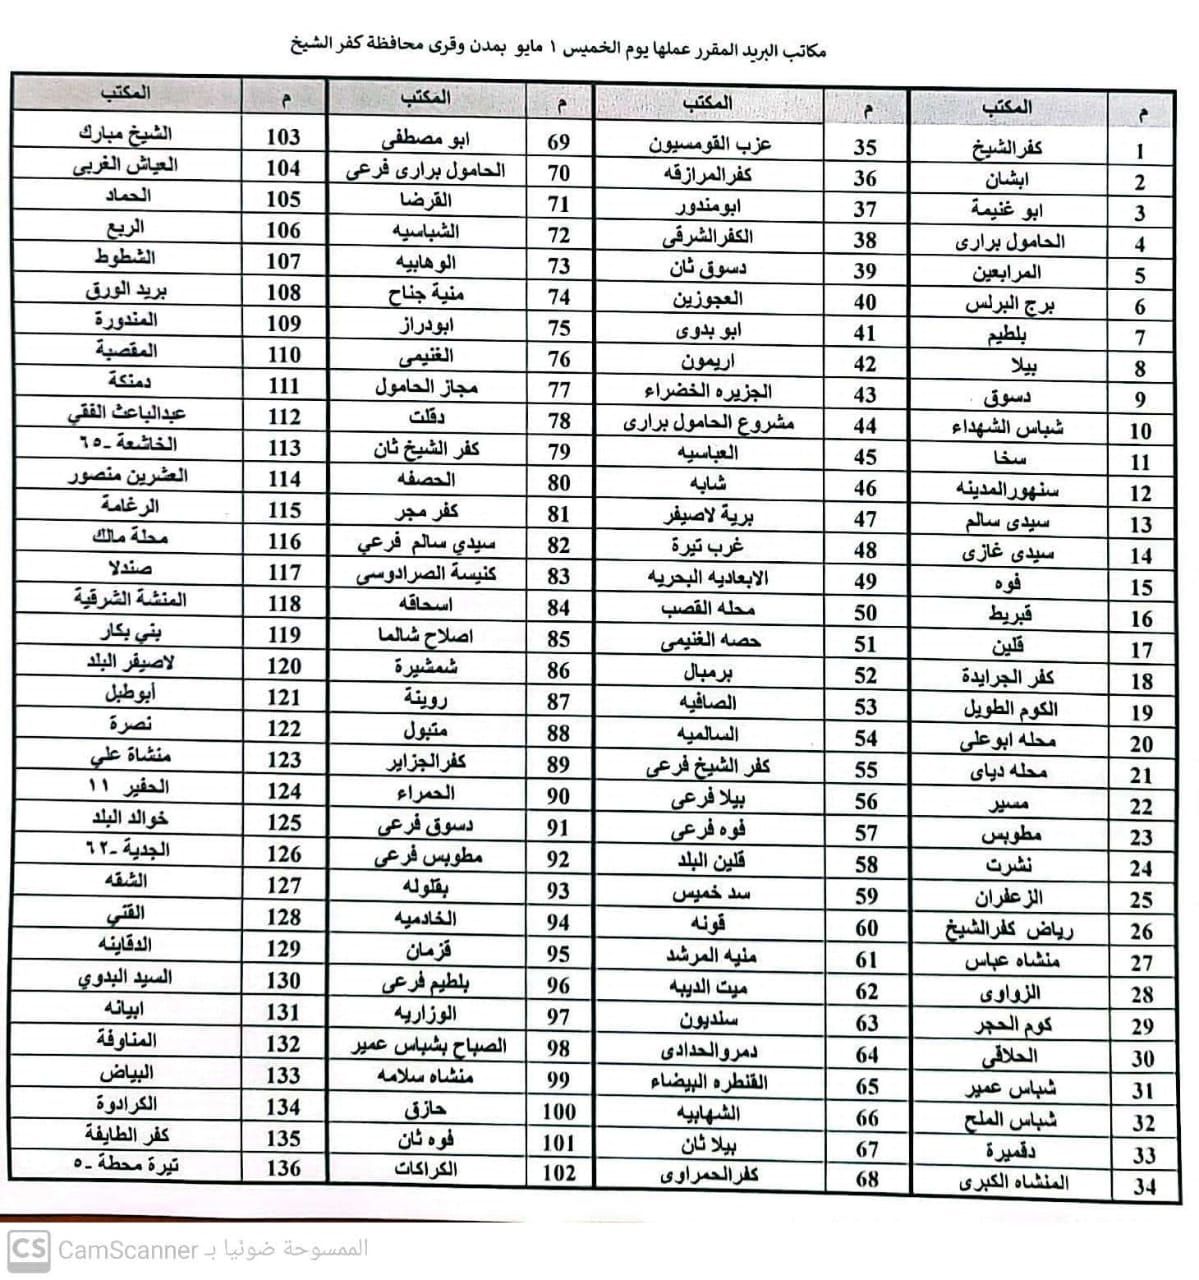 مكاتب البريد المقرر عملها يوم الخميس ١ مايو بمدن وقرى محافظة كفر الشيخ
م المكتب م المكتب م المكتب م المكتب
1 كفر الشيخ 35 عزب القومسيون 69 ابو مصطفى 103 الشيخ مبارك
2 ابشان 36 كفر المرازقه 70 الحامول برارى فرعى 104 العياش الغربى
3 ابو غنيمة 37 ابومندور 71 القرضا 105 الحماد
4 الحامول برارى 38 الكفر الشرقى 72 الشباسيه 106 الربع
5 المرابعين 39 دسوق ثان 73 الوهابيه 107 الشطوط
6 برج البرلس 40 العجوزين 74 منية جناح 108 بريد الورق
7 بلطيم 41 ابو بدوى 75 ابودراز 109 المندورة
8 بيلا 42 اريمون 76 الغنيمى 110 المقصبة
9 دسوق 43 الجزيره الخضراء 77 مجاز الحامول 111 دمنكة
10 شباس الشهداء 44 مشروع الحامول برارى 78 دقلت 112 عبدالباعث الفقي
11 سخا 45 العباسيه 79 كفر الشيخ ثان 113 الخاشعة -٦٥
12 سنهور المدينه 46 شابه 80 الحصفه 114 العشرين منصور
13 سيدى سالم 47 برية لاصيفر 81 كفر مجر 115 الرغامة
14 سيدى غازى 48 غرب تيرة 82 سيدي سالم فرعي 116 محلة مالك
15 فوه 49 الابعاديه البحريه 83 كنيسة الصرادوسى 117 صندلا
16 قبريط 50 محله القصب 84 اسحاقه 118 المنشة الشرقية
17 قلين 51 حصه الغنيمى 85 اصلاح شالما 119 بني بكار
18 كفر الجرايدة 52 برمبال 86 شمشيرة 120 لاصيفر البلد
19 الكوم الطويل 53 الصافيه 87 روينة 121 أبوطبل
20 محله ابوعلى 54 السالميه 88 متبول 122 نصرة
21 محله دياى 55 كفر الشيخ فرعى 89 كفر الجزاير 123 منشاة علي
22 مسير 56 بيلا فرعى 90 الحمراء 124 الحفير ١١
23 مطوبس 57 فوه فرعى 91 دسوق فرعى 125 خوالد البلد
24 نشرت 58 قلين البلد 92 مطوبس فرعى 126 الجدية -٦٢
25 الزعفران 59 سد خميس 93 بقلوله 127 الشقه
26 رياض كفر الشيخ 60 قونه 94 الخادميه 128 القني
27 منشاه عباس 61 منيه المرشد 95 قزمان 129 الدقاينه
28 الزواوى 62 ميت الديبه 96 بلطيم فرعى 130 السيد البدوي
29 كوم الحجر 63 سنديون 97 الوزاريه 131 ابيانه
30 الحلاقى 64 دمرو الحدادى 98 الصباح بشباس عمير 132 المناوفة
31 شباس عمير 65 القنطره البيضاء 99 منشاه سلامه 133 البياض
32 شباس الملح 66 الشهابيه 100 حازق 134 الكرادوة
33 دقميرة 67 بيلا ثان 101 فوه ثان 135 كفر الطايفة
34 المنشاه الكبرى 68 كفر الحمراوى 102 الكراكات 136 تيرة محطة -٥
CS CamScanner الممسوحة ضوئيا بـ